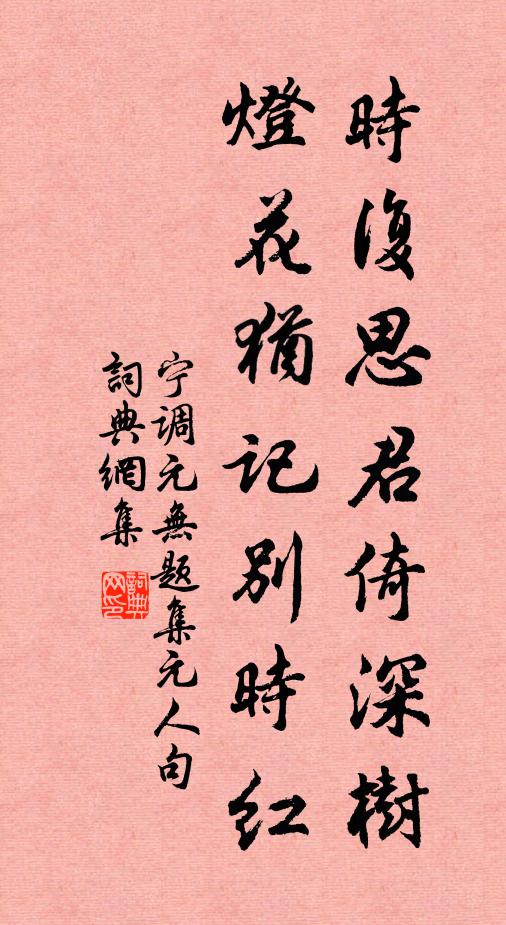 時復思君倚深樹
燈花猶記別時紅
宁调元無题集元人句
詞典網集
詞典网印